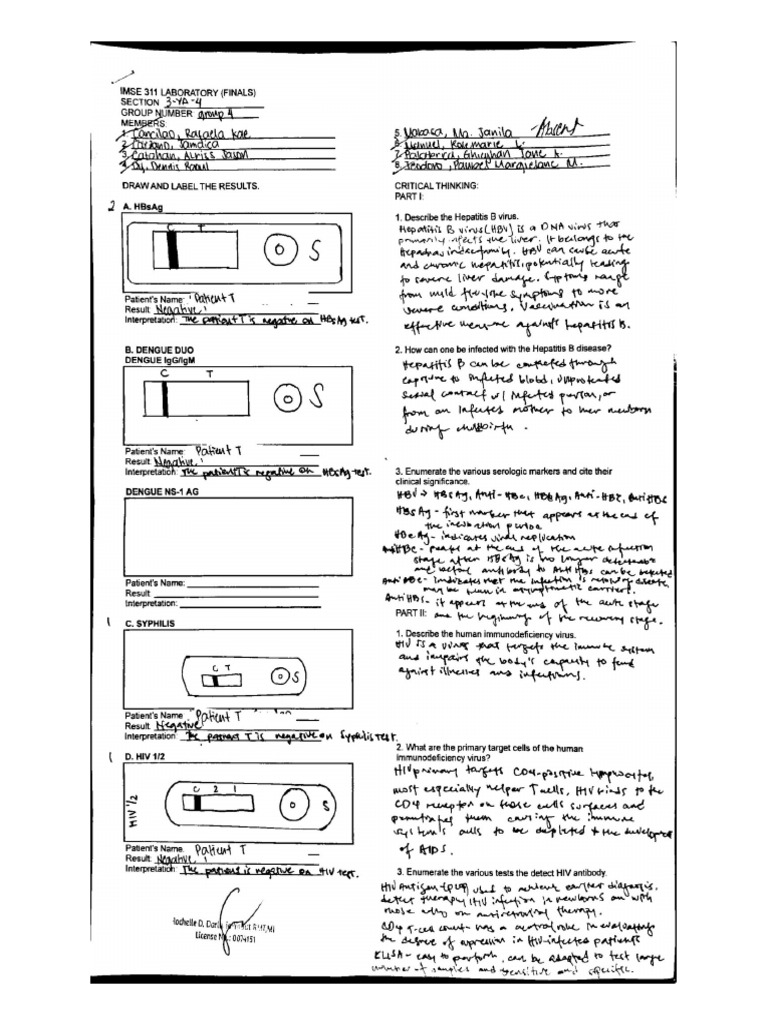 IMSE 311 LABORATORY (FINALS)
SECTION 3-YA-4
GROUP NUMBER group 4
MEMBERS
1. Cancilao, Rafaela Kae
2. Jamdica
3. Catahan, Alriss Jason
4. Sy, Dennis Raoul
DRAW AND LABEL THE RESULTS.
2 A. HBsAg
C T
S
Patient's Name: Patient T
Result: Negative
Interpretation: The patient T is negative on HBsAg test.
B. DENGUE DUO
DENGUE IgG/IgM
C T
S
Patient's Name: Patient T
Result: Negative
Interpretation: The patient T is negative on HBsAg test.
DENGUE NS-1 AG
Patient's Name:
Result
Interpretation:
1 C. SYPHILIS
C T
S
Patient's Name Patient T
Result: Negative
Interpretation: The patient T is negative on Syphilis test.
1 D. HIV 1/2
HIV 1/2
C 2 1
S
Patient's Name. Patient T
Result: Negative
Interpretation: The patient is negative on HIV test.
Rochelle D. RMT, MI
License No.: 0074151
5. Mabasa, Ma. Janila - Absent
6. Manuel, Rosemarie L.
7. Palaterra, Ghieyhan Jane A.
8. Teodoro, Marqielane M.
CRITICAL THINKING:
PART I:
1. Describe the Hepatitis B virus.
Hepatitis B virus (HBV) is a DNA virus that
primarily infects the liver. It belongs to the
Hepadnaviridae family. HBV can cause acute
and chronic hepatitis, potentially leading
to severe liver damage. Symptoms range
from mild flu-like symptoms to more
severe conditions. Vaccination is an
effective measure against hepatitis B.
2. How can one be infected with the Hepatitis B disease?
Hepatitis B can be contracted through
exposure to infected blood, unprotected
sexual contact w/ infected person, or
from an infected mother to her newborn
during childbirth.
3. Enumerate the various serologic markers and cite their
clinical significance.
HBV → HBsAg, Anti-HBc, HBeAg, Anti-HBe, Anti HBs
HBsAg - first marker that appears at the end of
the incubation period
HBeAg - indicates viral replication
Anti HBc - peaks at the end of the acute infection
stage after HBsAg is no longer detectable
and before antibody to Anti HBs can be detected
Anti HBe - indicates that the infection is
may be seen in asymptomatic carriers.
Anti HBs - it appears at the end of the acute stage
PART II: and the beginning of the recovery stage.
1. Describe the human immunodeficiency virus.
HIV is a virus that targets the immune system
and impairs the body's capacity to fend
against illnesses and infections.
2. What are the primary target cells of the human
immunodeficiency virus?
HIV primary targets CD4-positive lymphocytes,
most especially helper T cells, HIV binds to the
CD4 receptor on those cells surfaces and
penetrates them causing the immune
system's cells to be depleted & the development
of AIDS.
3. Enumerate the various tests the detect HIV antibody.
HIV Antigen (p24) used to achieve earlier diagnosis,
detect therapy HIV infection in newborns on with
those on antiretroviral therapy.
CD4 T-cell count - has a central role in evaluating
the degree of in HIV-infected patients
ELISA - easy to perform, can be adapted to test large
number of samples and sensitive and specific.